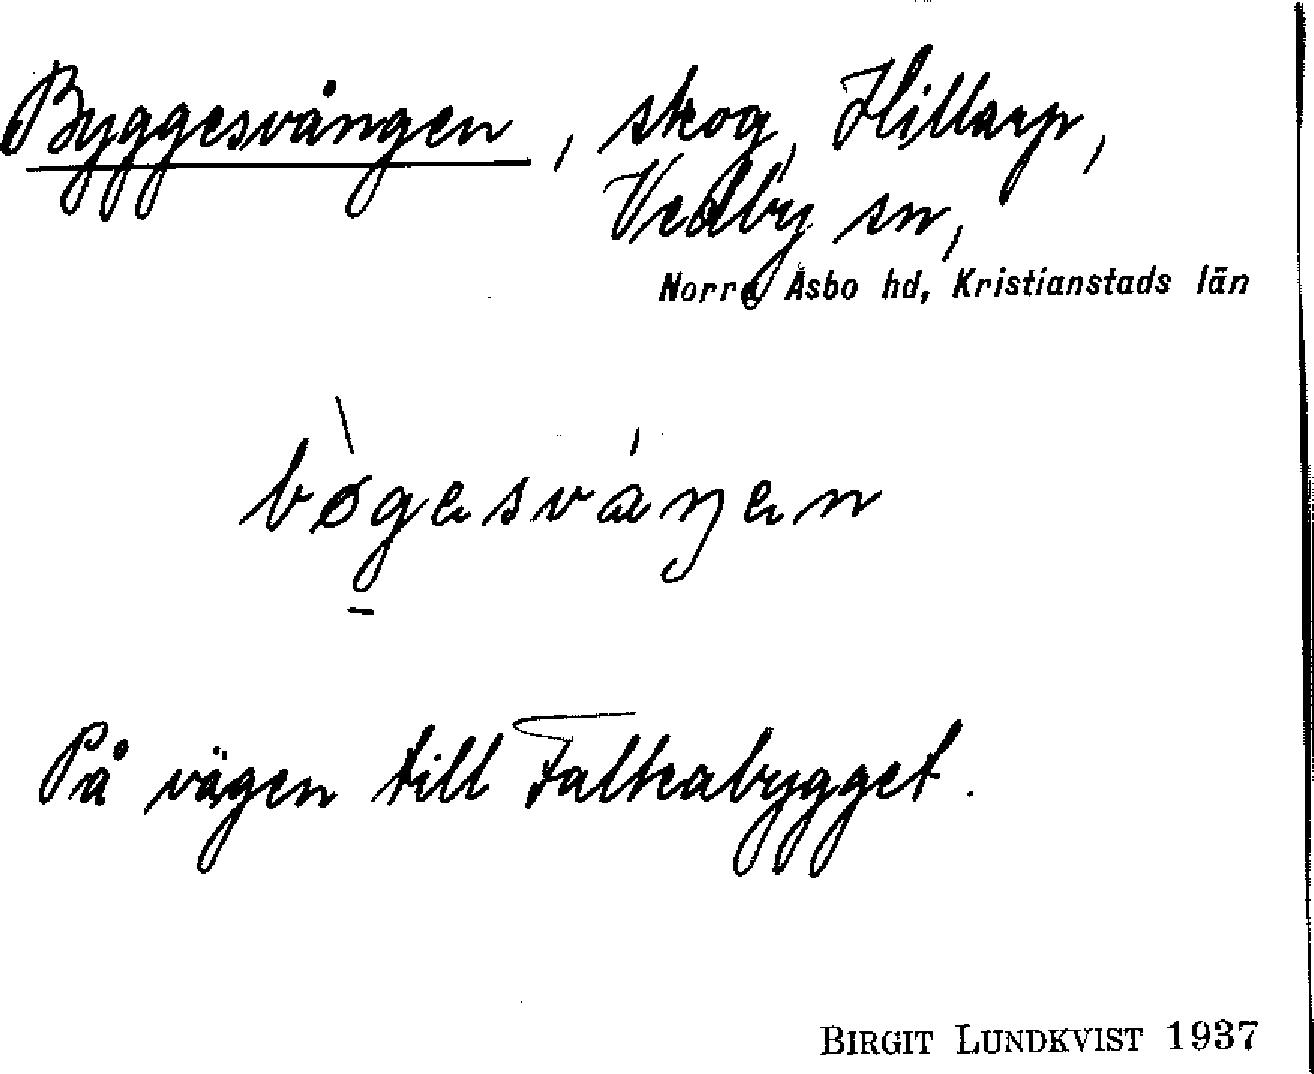 Byggesvången, skog, Hillarp,
Vedby sn,
Norra Åsbo hd, Kristianstads län
bøgesváŋen
På vägen till Falkabygget.
BIRGIT LUNDKVIST 1937